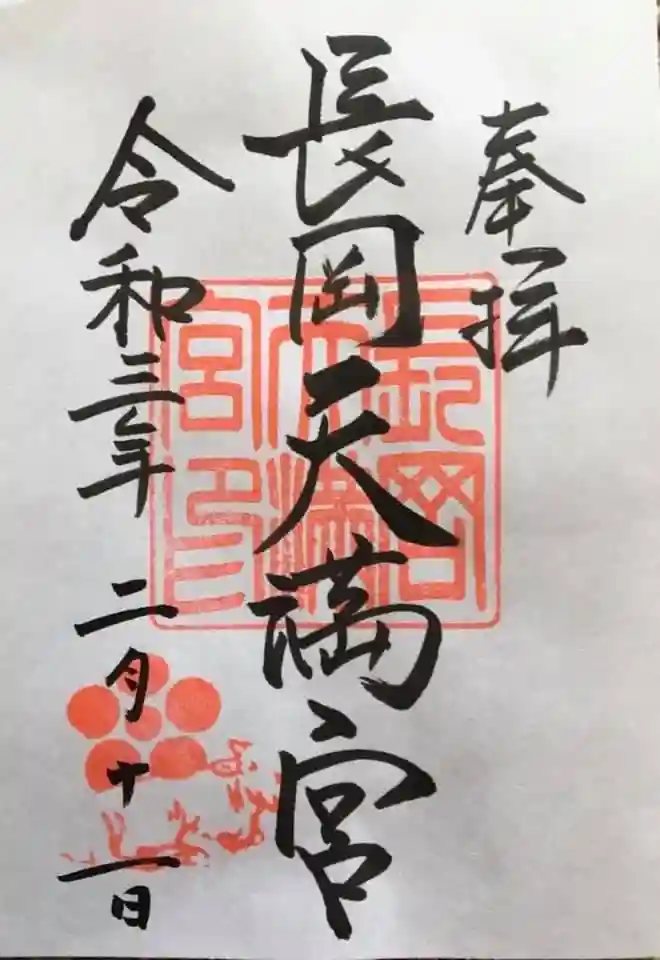 奉拝
長岡天満宮
長岡天満宮印
令和三年二月十一日